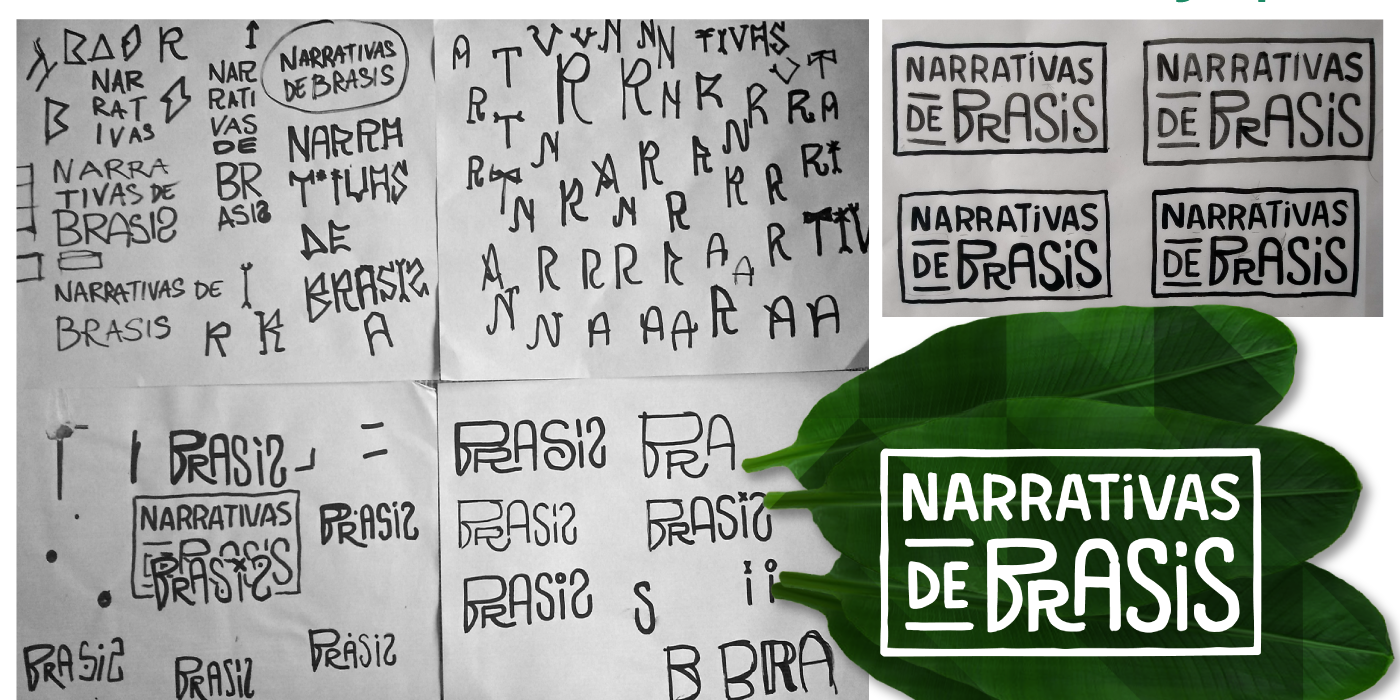 B A O R
NAR
RAT
IVAS
B
NARRA
TIVAS DE
BRASIS
NARRATIVAS DE
BRASIS
R R
NAR
RATI
VAS
DE
BR
ASIS
I
NARRATIVAS
DE BRASIS
NARRA
TIVAS
DE
BRASIS
A
A T V V N N N TIVAS
R T R R N R R V T R A
R T N A R R N R R RI
N R N R
A R R R R A A R TIV
N N A A A R A A
BRASiS
NARRATIVAS
BRASiS
BRASiS
BRASiS
BRASiS
BRASiS
BRASiS
BRA
BRASiS
BRASiS
BRASiS
S
i i
B BRA
NARRATiVAS
DE BRASiS
NARRATiVAS
DE BRASiS
NARRATiVAS
DE BRASiS
NARRATiVAS
DE BRASiS
NARRATiVAS
DE BRASiS